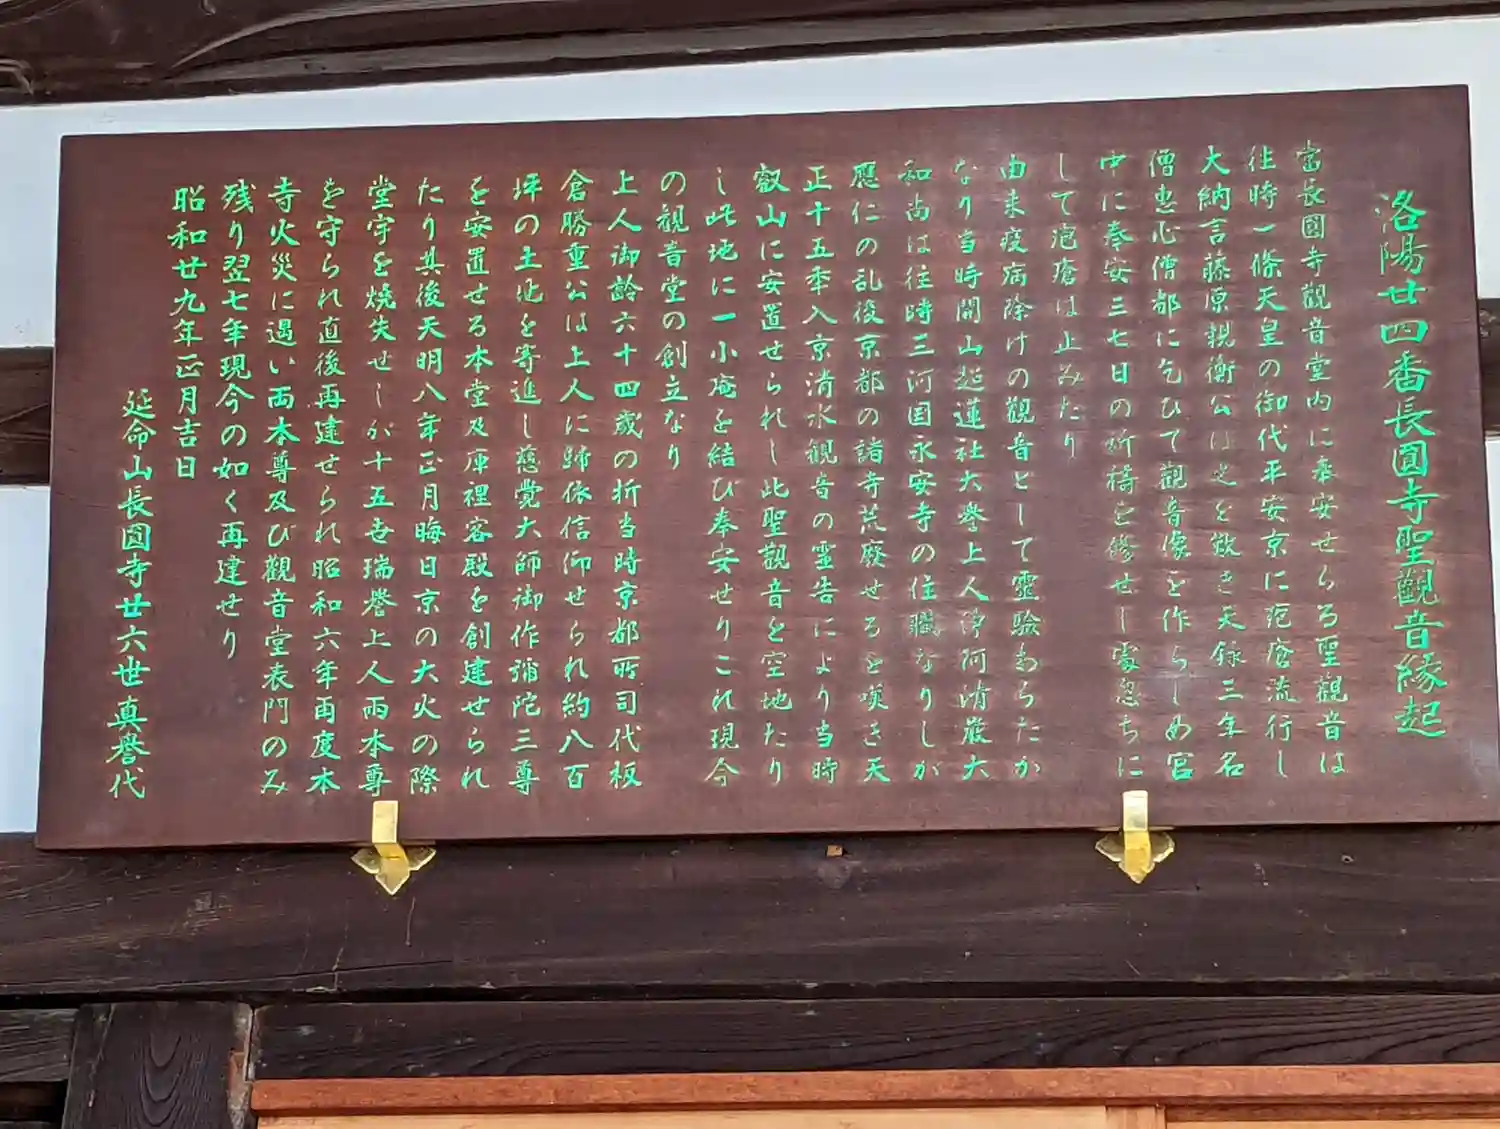 洛陽廿四番長圓寺聖觀音縁起
當長圓寺觀音堂内に奉安せらろ聖觀音は
往時一條天皇の御代平安京に疱瘡流行し
大納言藤原親衡公は之を歎き天録三年名
僧恵心僧都に乞ひて觀音像を作らしめ宮
中に奉安三七日の祈祷を修せし處忽ちに
して疱瘡は止みたり
由来疫病除けの觀音として靈驗あらたか
なり当時開山起蓮社大誉上人浄阿清巌大
和尚は往時三河国永安寺の住職なりしが
應仁の乱後京都の諸寺荒廢せるを嘆き天
正十五年入京清水観音の霊告により当時
叡山に安置せられし此聖觀音を空地たり
し此地に一小庵を結び奉安せりこれ現今
の観音堂の創立なり
上人御齢六十四歳の折当時京都所司代板
倉勝重公は上人に歸依信仰せられ約八百
坪の土地を寄進し慈覚大師御作彌陀三尊
を安置せる本堂及庫裡客殿を創建せられ
たり其後天明八年正月晦日京の大火の際
堂宇を焼失せしが十五世瑞誉上人両本尊
を守られ直後再建せられ昭和六年再度本
寺火災に遇い両本尊及び觀音堂表門のみ
残り翌七年現今の如く再建せり
昭和廿九年正月吉日
延命山長圓寺廿六世真誉代